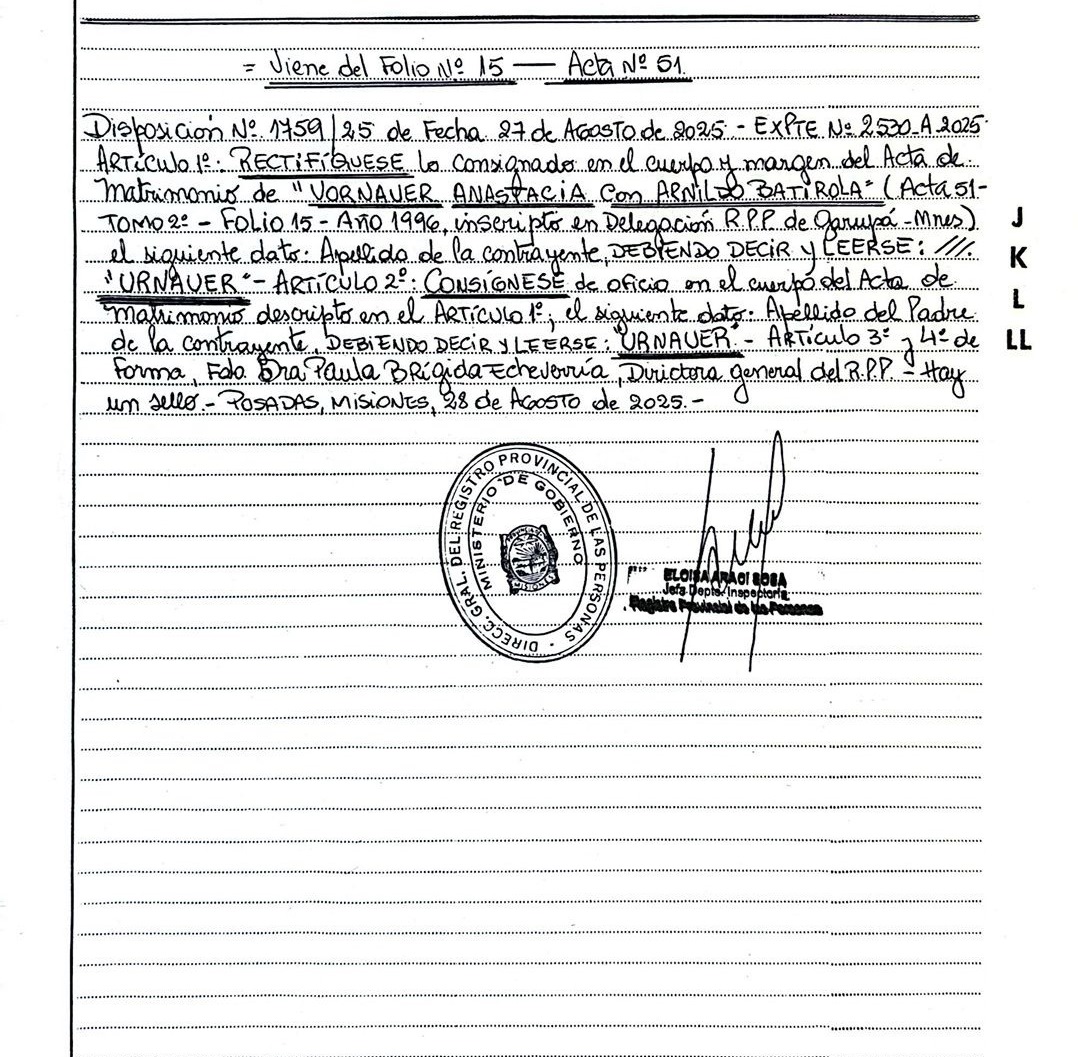 = Viene del Folio Nº 15 — Acta Nº 51.
Disposición Nº 1759/25 de Fecha 27 de Agosto de 2025 - EXPTE Nº 2530-A-2025
ARTÍCULO 1º: RECTIFÍQUESE lo consignado en el cuerpo y margen del Acta de
Matrimonio de "VORNAUER ANASTACIA con ARNILDO BATIROLA" (Acta 51-
TOMO 2º - FOLIO 15 - AÑO 1996, inscripto en Delegación R.P.P. de Garupá - Mnes)
el siguiente dato: Apellido de la contrayente, DEBIENDO DECIR y LEERSE: ///.
"URNAUER" - ARTÍCULO 2º: CONSÍGNESE de oficio en el cuerpo del Acta de
Matrimonio descripto en el ARTÍCULO 1º, el siguiente dato: Apellido del Padre
de la contrayente, DEBIENDO DECIR Y LEERSE: "URNAUER". - ARTÍCULO 3º y 4º de
Forma, Fdo. Dra Paula Brígida Echeverría, Directora general del R.P.P. - Hay
un sello.- POSADAS, MISIONES, 28 de AGOSTO de 2025.-
J
K
L
LL
DIRECC. GRAL. DEL REGISTRO PROVINCIAL DE LAS PERSONAS -
MINISTERIO DE GOBIERNO
MISIONES
ELOISA ARACI SOSA
Jefa Depto. Inspectoría
Registro Provincial de las Personas